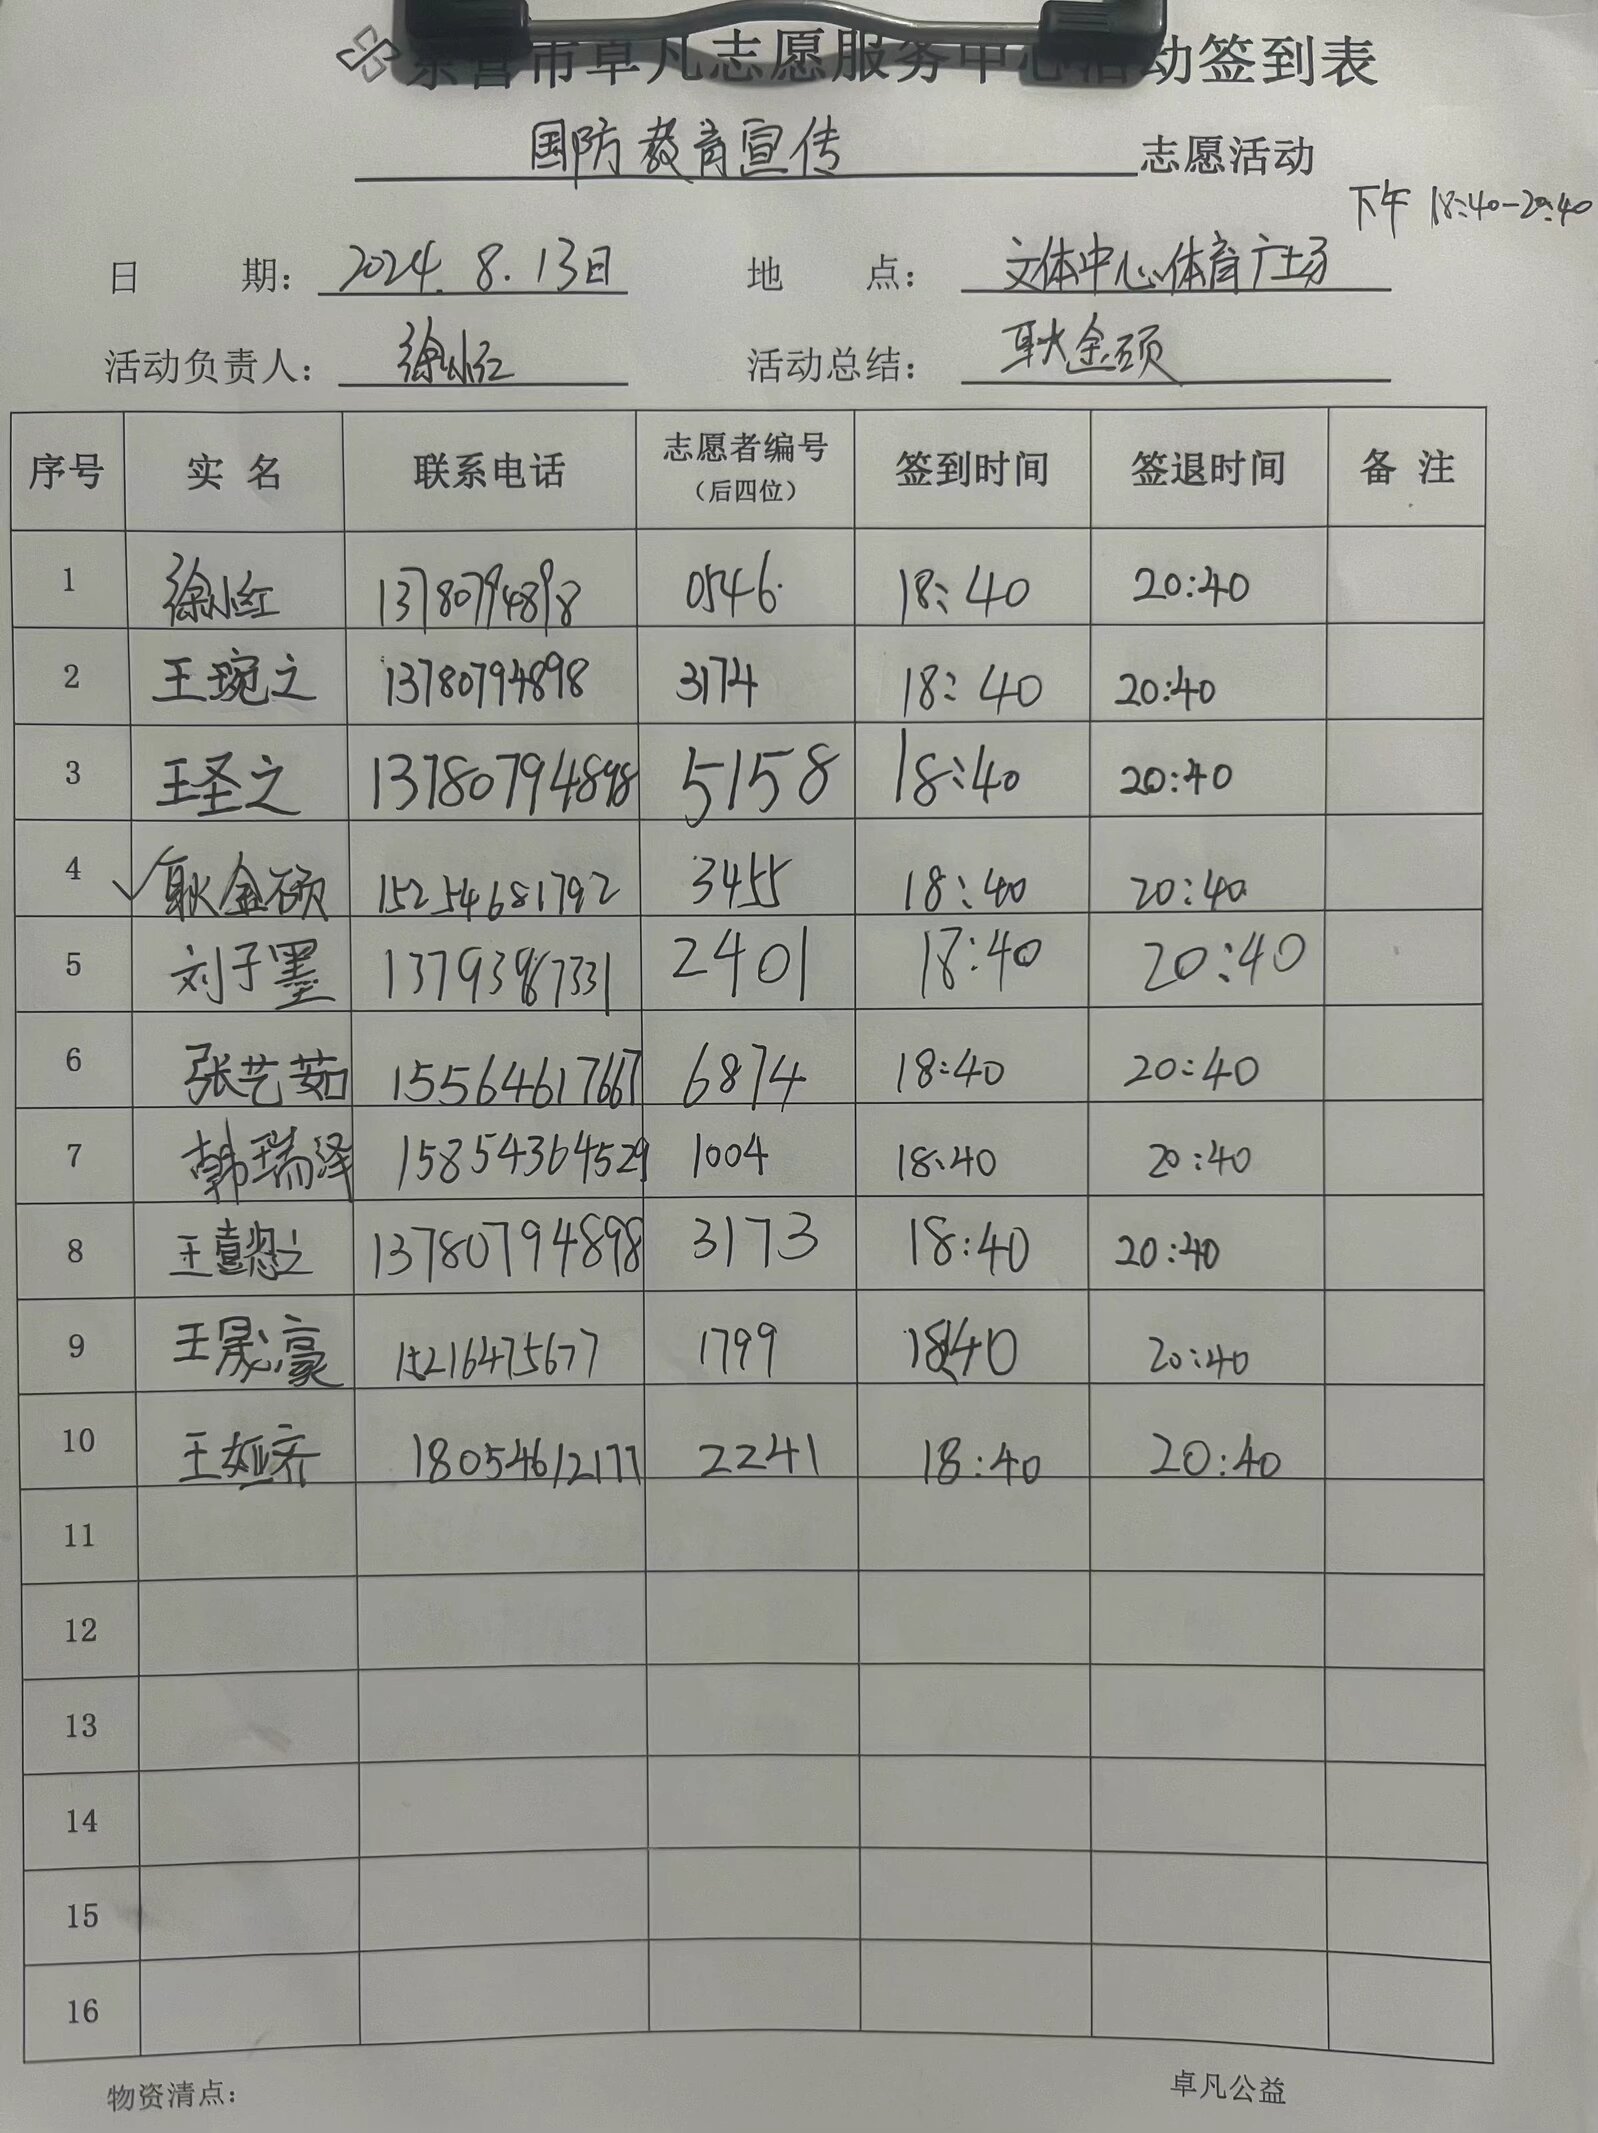 东营市卓凡志愿服务中心活动签到表
国防教育宣传 志愿活动
下午 18:40-20:40
日 期: 2024.8.13日 地 点: 文体中心体育广场
活动负责人: 徐小红 活动总结: 耿金硕
序号 实 名 联系电话 志愿者编号(后四位) 签到时间 签退时间 备 注
1 徐小红 13780794898 0546 18:40 20:40
2 王琬之 13780794898 3174 18:40 20:40
3 王圣之 13780794898 5158 18:40 20:40
4 ✓耿金硕 15254681792 3455 18:40 20:40
5 刘子墨 13793967331 2401 18:40 20:40
6 张艺茹 15564617667 6874 18:40 20:40
7 韩瑞泽 15854364529 1004 18:40 20:40
8 王 之 13780794898 3173 18:40 20:40
9 王晟豪 15216475677 1799 18:40 20:40
10 王娅齐 18054612177 2241 18:40 20:40
11
12
13
14
15
16
物资清点: 卓凡公益